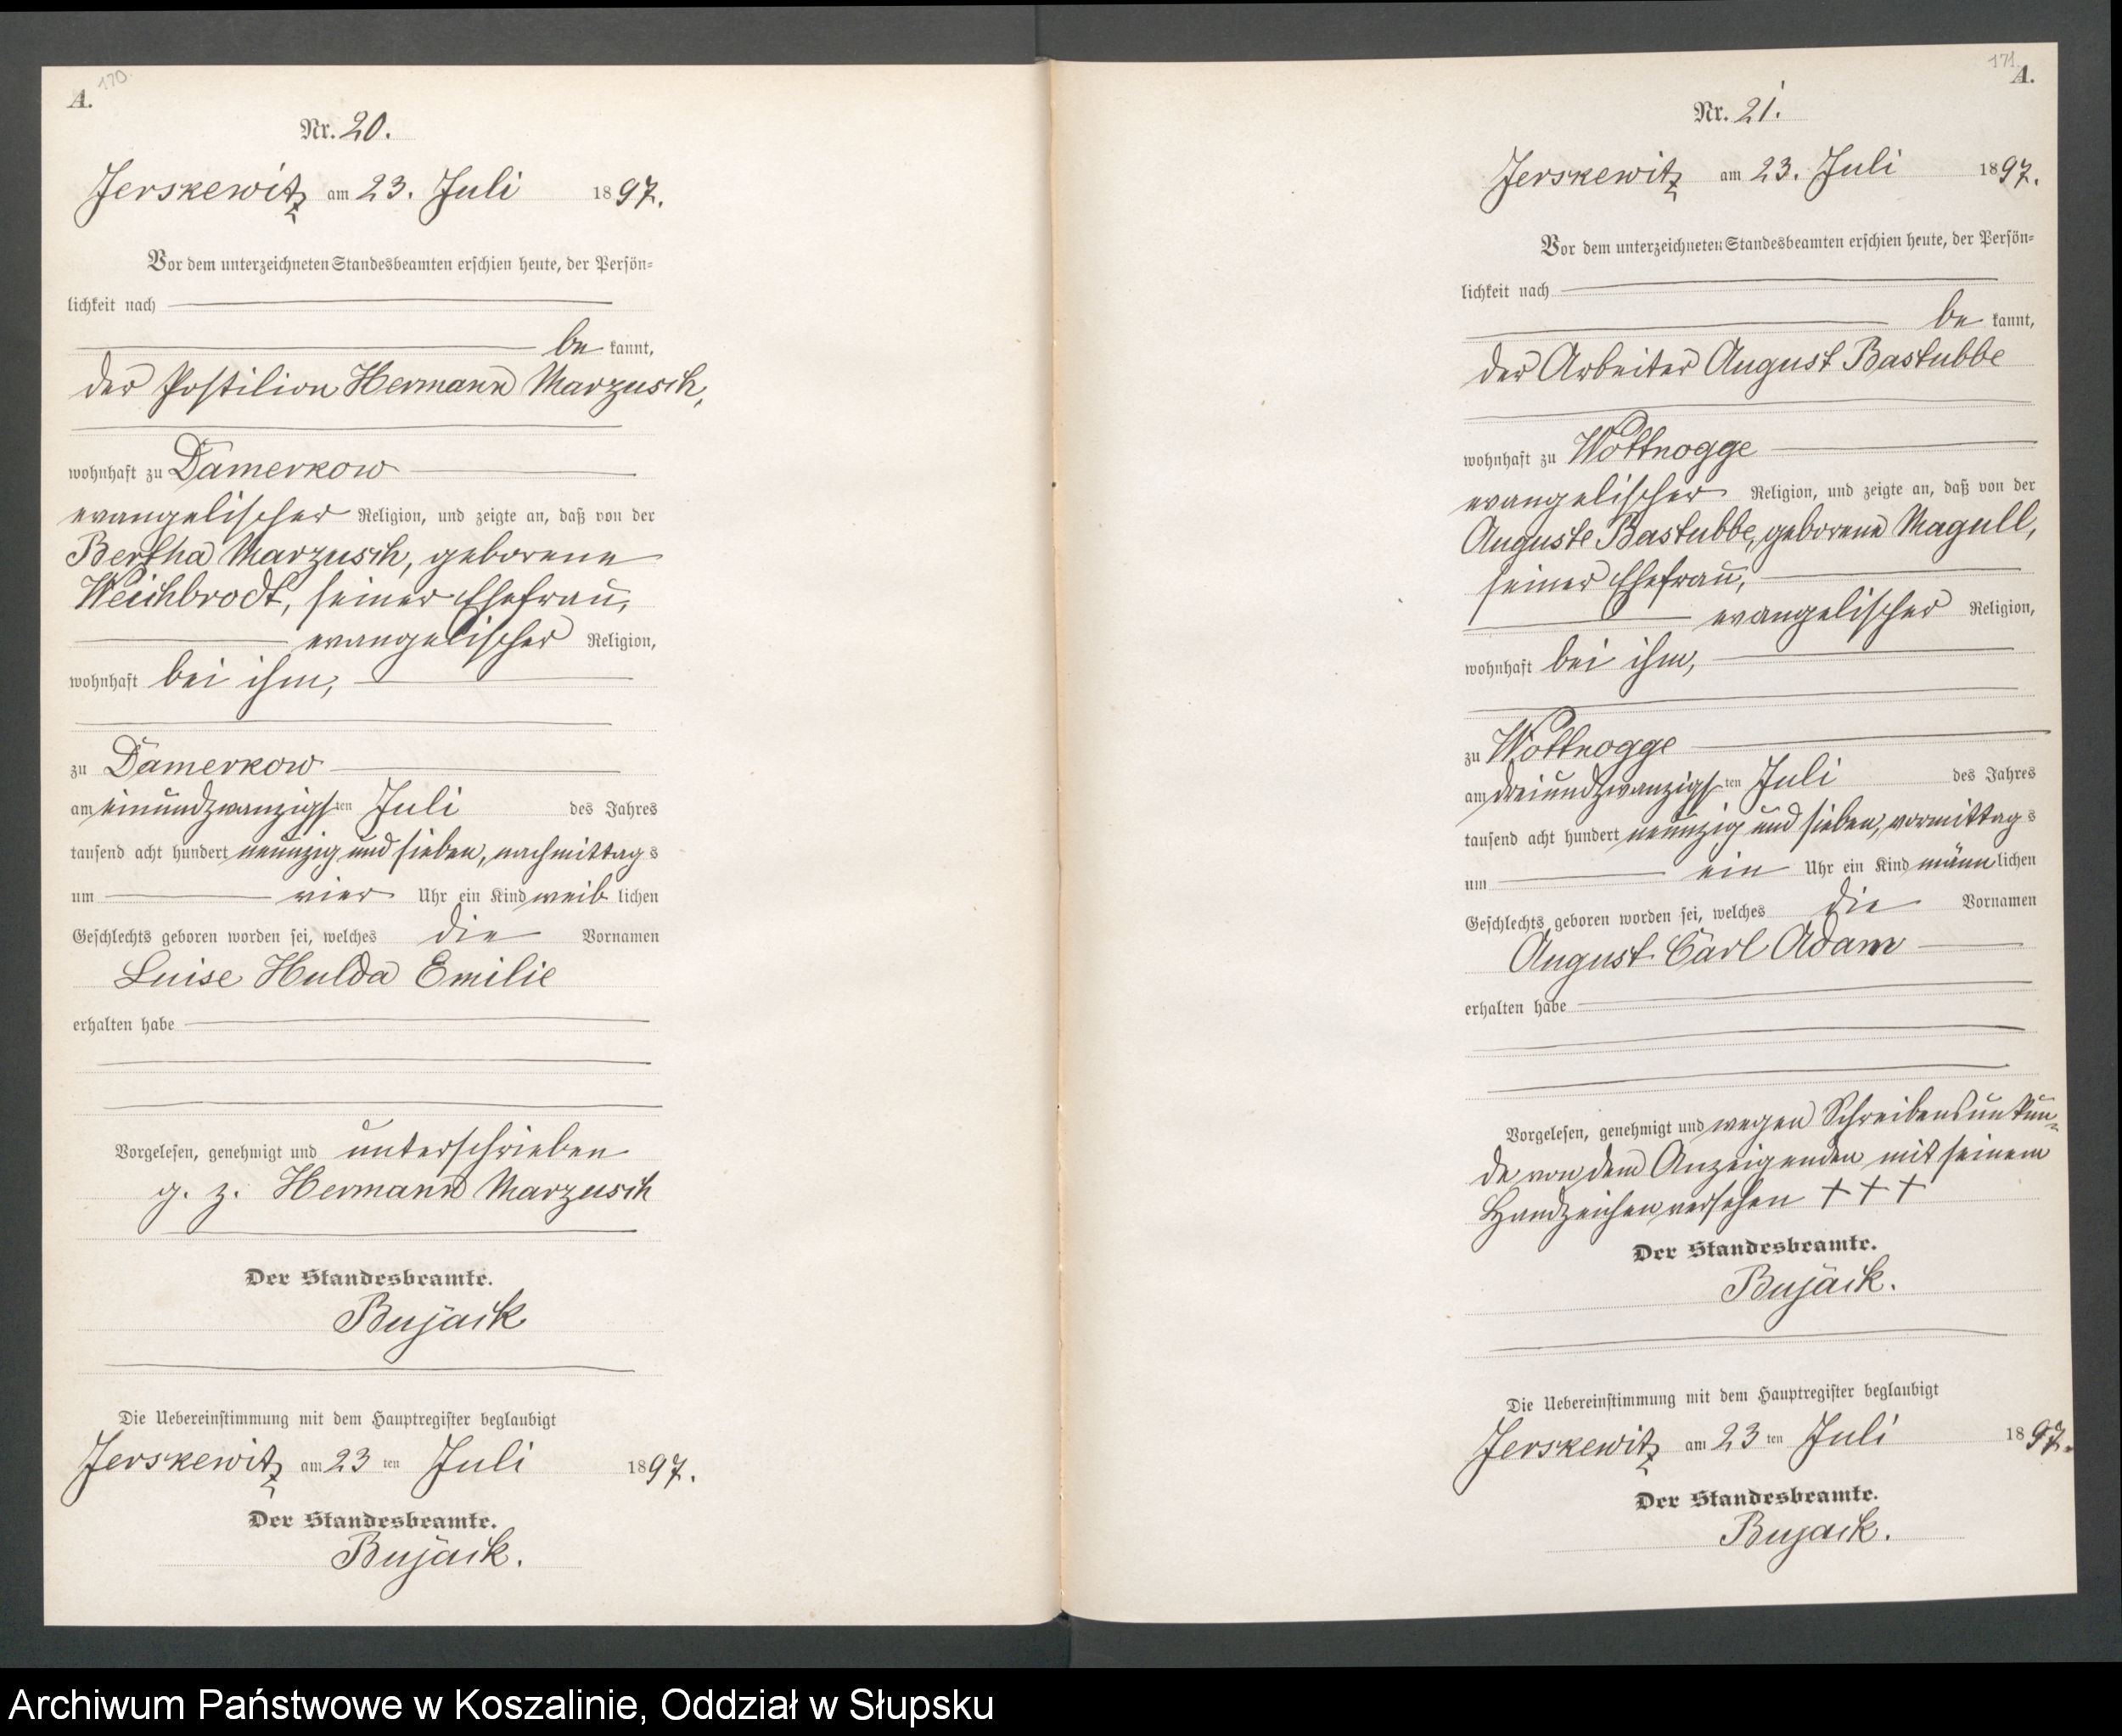 A.
170.
Nr. 20.
Jerskewitz am 23. Juli 1897.
Vor dem unterzeichneten Standesbeamten erschien heute, der Persön-
lichkeit nach
be kannt,
der Postilion Hermann Marzusch,
wohnhaft zu Damerkow
evangelischer Religion, und zeigte an, daß von der
Bertha Marzusch, geborene
Weichbrodt, seiner Ehefrau,
evangelischer Religion,
wohnhaft bei ihm,
zu Damerkow
am einundzwanzigsten Juli des Jahres
tausend acht hundert neunzig und sieben, nachmittags
um vier Uhr ein Kind weiblichen
Geschlechts geboren worden sei, welches die Vornamen
Luise Hulda Emilie
erhalten habe
Vorgelesen, genehmigt und unterschrieben
g. z. Hermann Marzusch
Der Standesbeamte.
Bujack
Die Uebereinstimmung mit dem Hauptregister beglaubigt
Jerskewitz am 23 ten Juli 1897.
Der Standesbeamte.
Bujack.
171.
A.
Nr. 21.
Jerskewitz am 23. Juli 1897.
Vor dem unterzeichneten Standesbeamten erschien heute, der Persön-
lichkeit nach
be kannt,
der Arbeiter August Bastubbe
wohnhaft zu Wottnogge
evangelischer Religion, und zeigte an, daß von der
Auguste Bastubbe, geborene Magull,
seiner Ehefrau,
evangelischer Religion,
wohnhaft bei ihm,
zu Wottnogge
am dreiundzwanzigsten Juli des Jahres
tausend acht hundert neunzig und sieben, vormittags
um ein Uhr ein Kind männlichen
Geschlechts geboren worden sei, welches die Vornamen
August Carl Adam
erhalten habe
Vorgelesen, genehmigt und wegen Schreibensunkun-
de von dem Anzeigenden mit seinem
Handzeichen versehen + + +
Der Standesbeamte.
Bujack.
Die Uebereinstimmung mit dem Hauptregister beglaubigt
Jerskewitz am 23 ten Juli 1897.
Der Standesbeamte.
Bujack.
Archiwum Państwowe w Koszalinie, Oddział w Słupsku